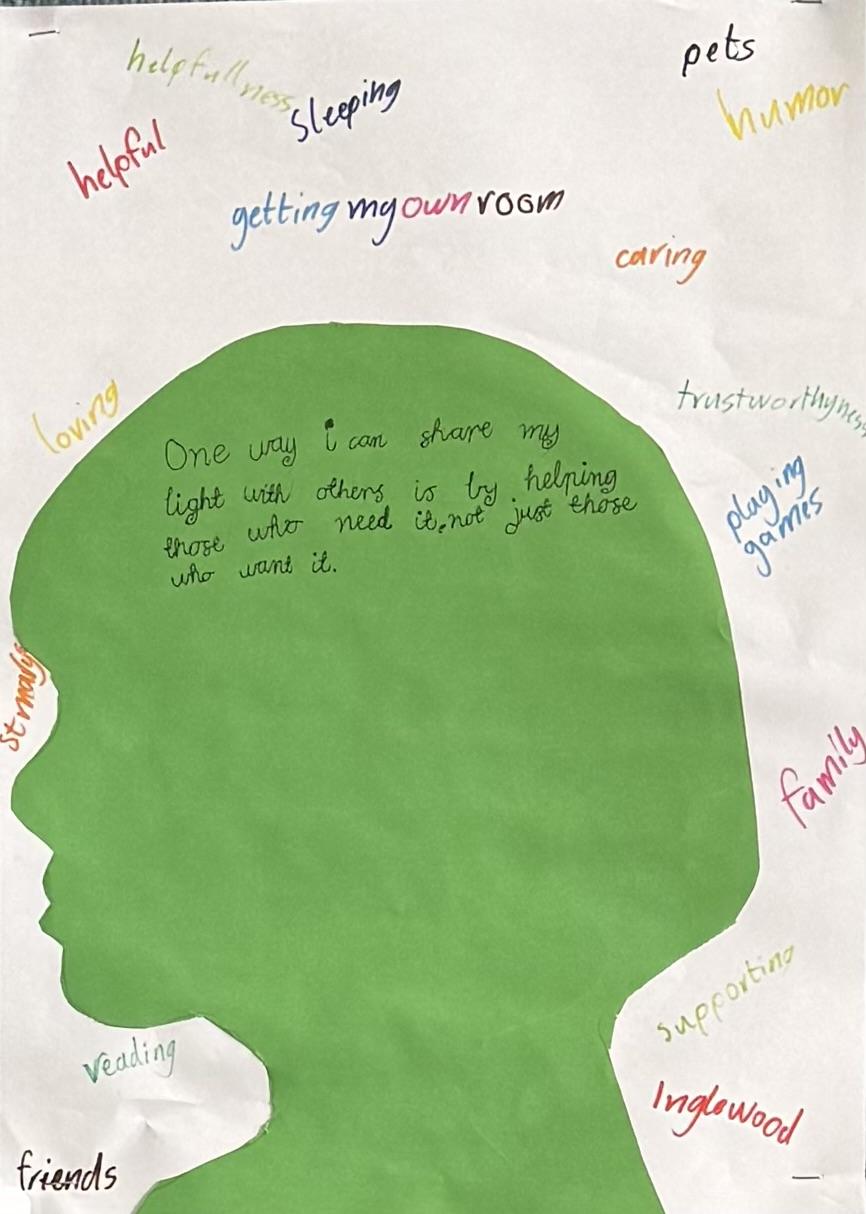 helpfullness
sleeping
pets
humor
helpful
getting my own room
caring
loving
trustworthyness
One way i can share my
light with others is by helping
those who need it, not just those
who want it.
playing
games
family
supporting
reading
Inglewood
friends